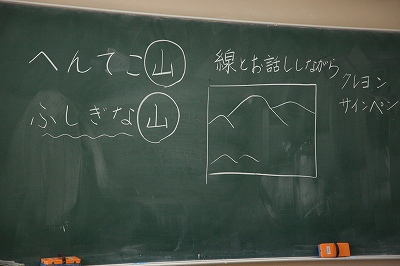 へんてこ山
ふしぎな山
線とお話ししながら
クレヨン
サインペン